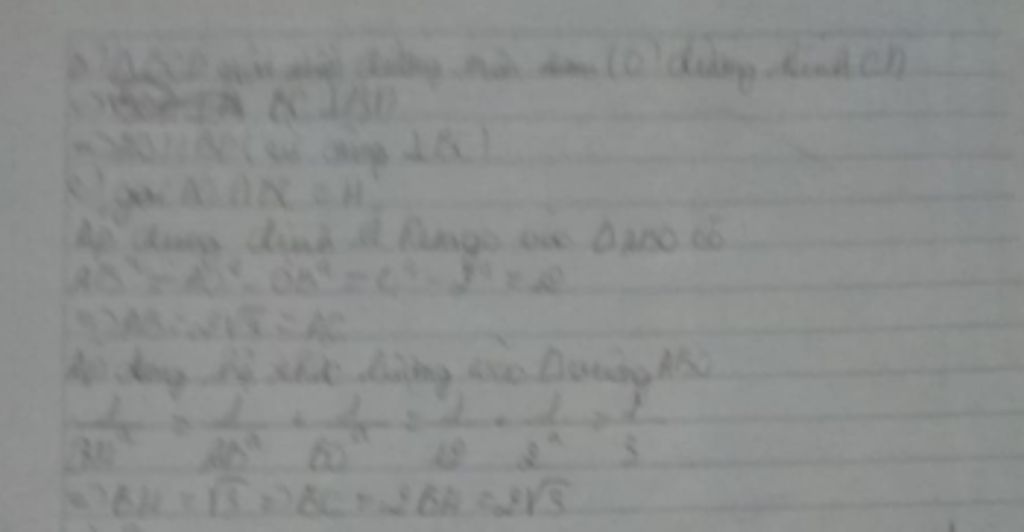 nội tiếp đường tròn tâm (O) đường kính CD
=> BC ⊥ BD
=> (vì cùng ⊥ BC)
c) gọi AO ∩ BC = H
Áp dụng định lí Pitago vào Δ ABO có
AB² = AO² - OB² = 4² - 2² = 12
=> AB = 2√3 = AC
Áp dụng hệ thức lượng vào Δ vuông ABO
1/BH² = 1/AB² + 1/BO² = 1/12 + 1/2² = 1/3
=> BH = √3 => BC = 2BH = 2√3